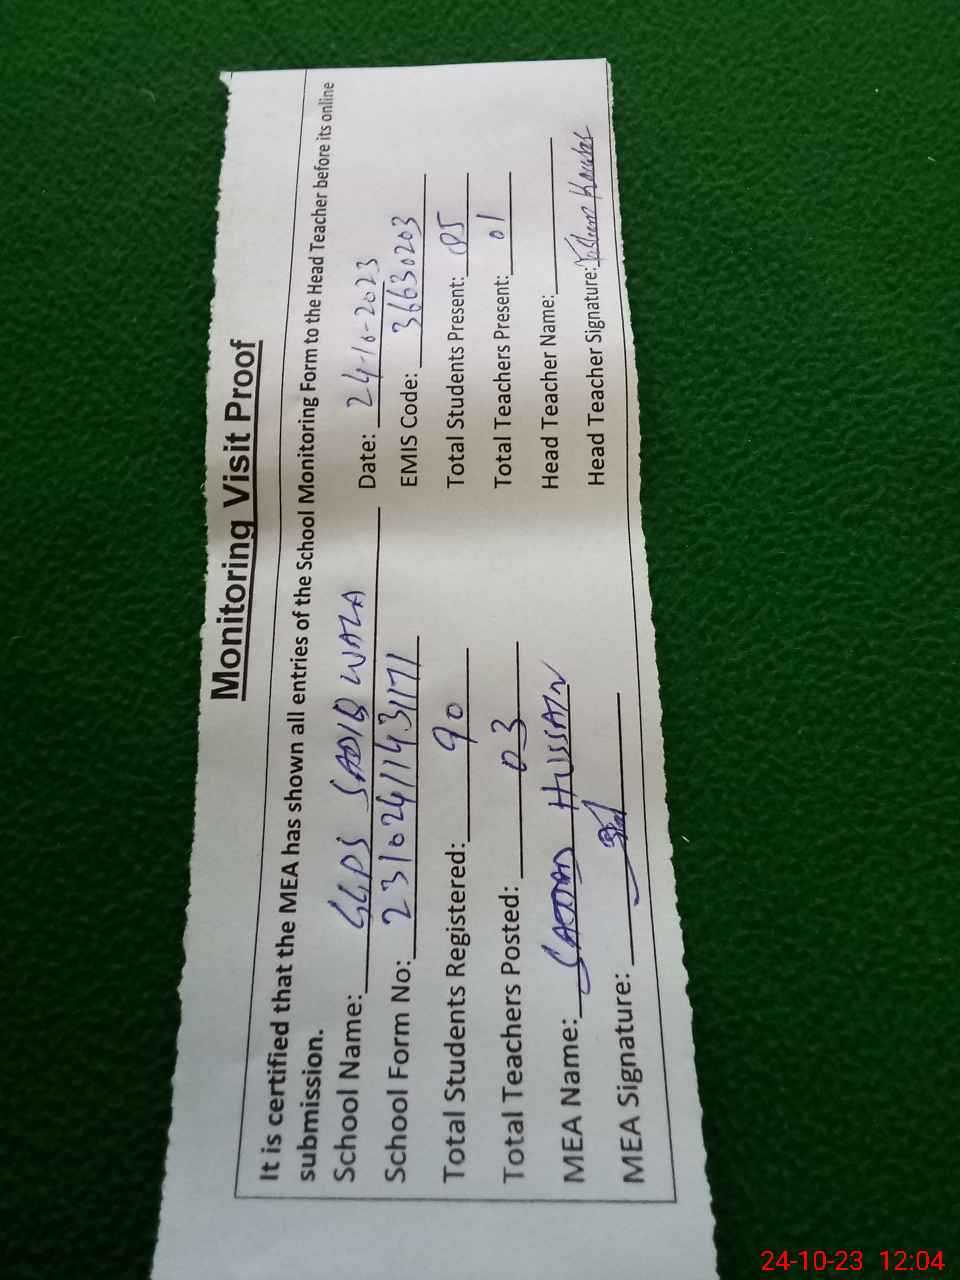 Monitoring Visit Proof
It is certified that the MEA has shown all entries of the School Monitoring Form to the Head Teacher before its online
submission.
School Name: GGPS SADIQ WALA Date: 24-10-2023
School Form No: 23102411431171 EMIS Code: 36630203
Total Students Registered: 90 Total Students Present: 85
Total Teachers Posted: 03 Total Teachers Present: 01
MEA Name: SAJJAD HUSSAIN Head Teacher Name:
MEA Signature: Head Teacher Signature: Kausar
24-10-23 12:04